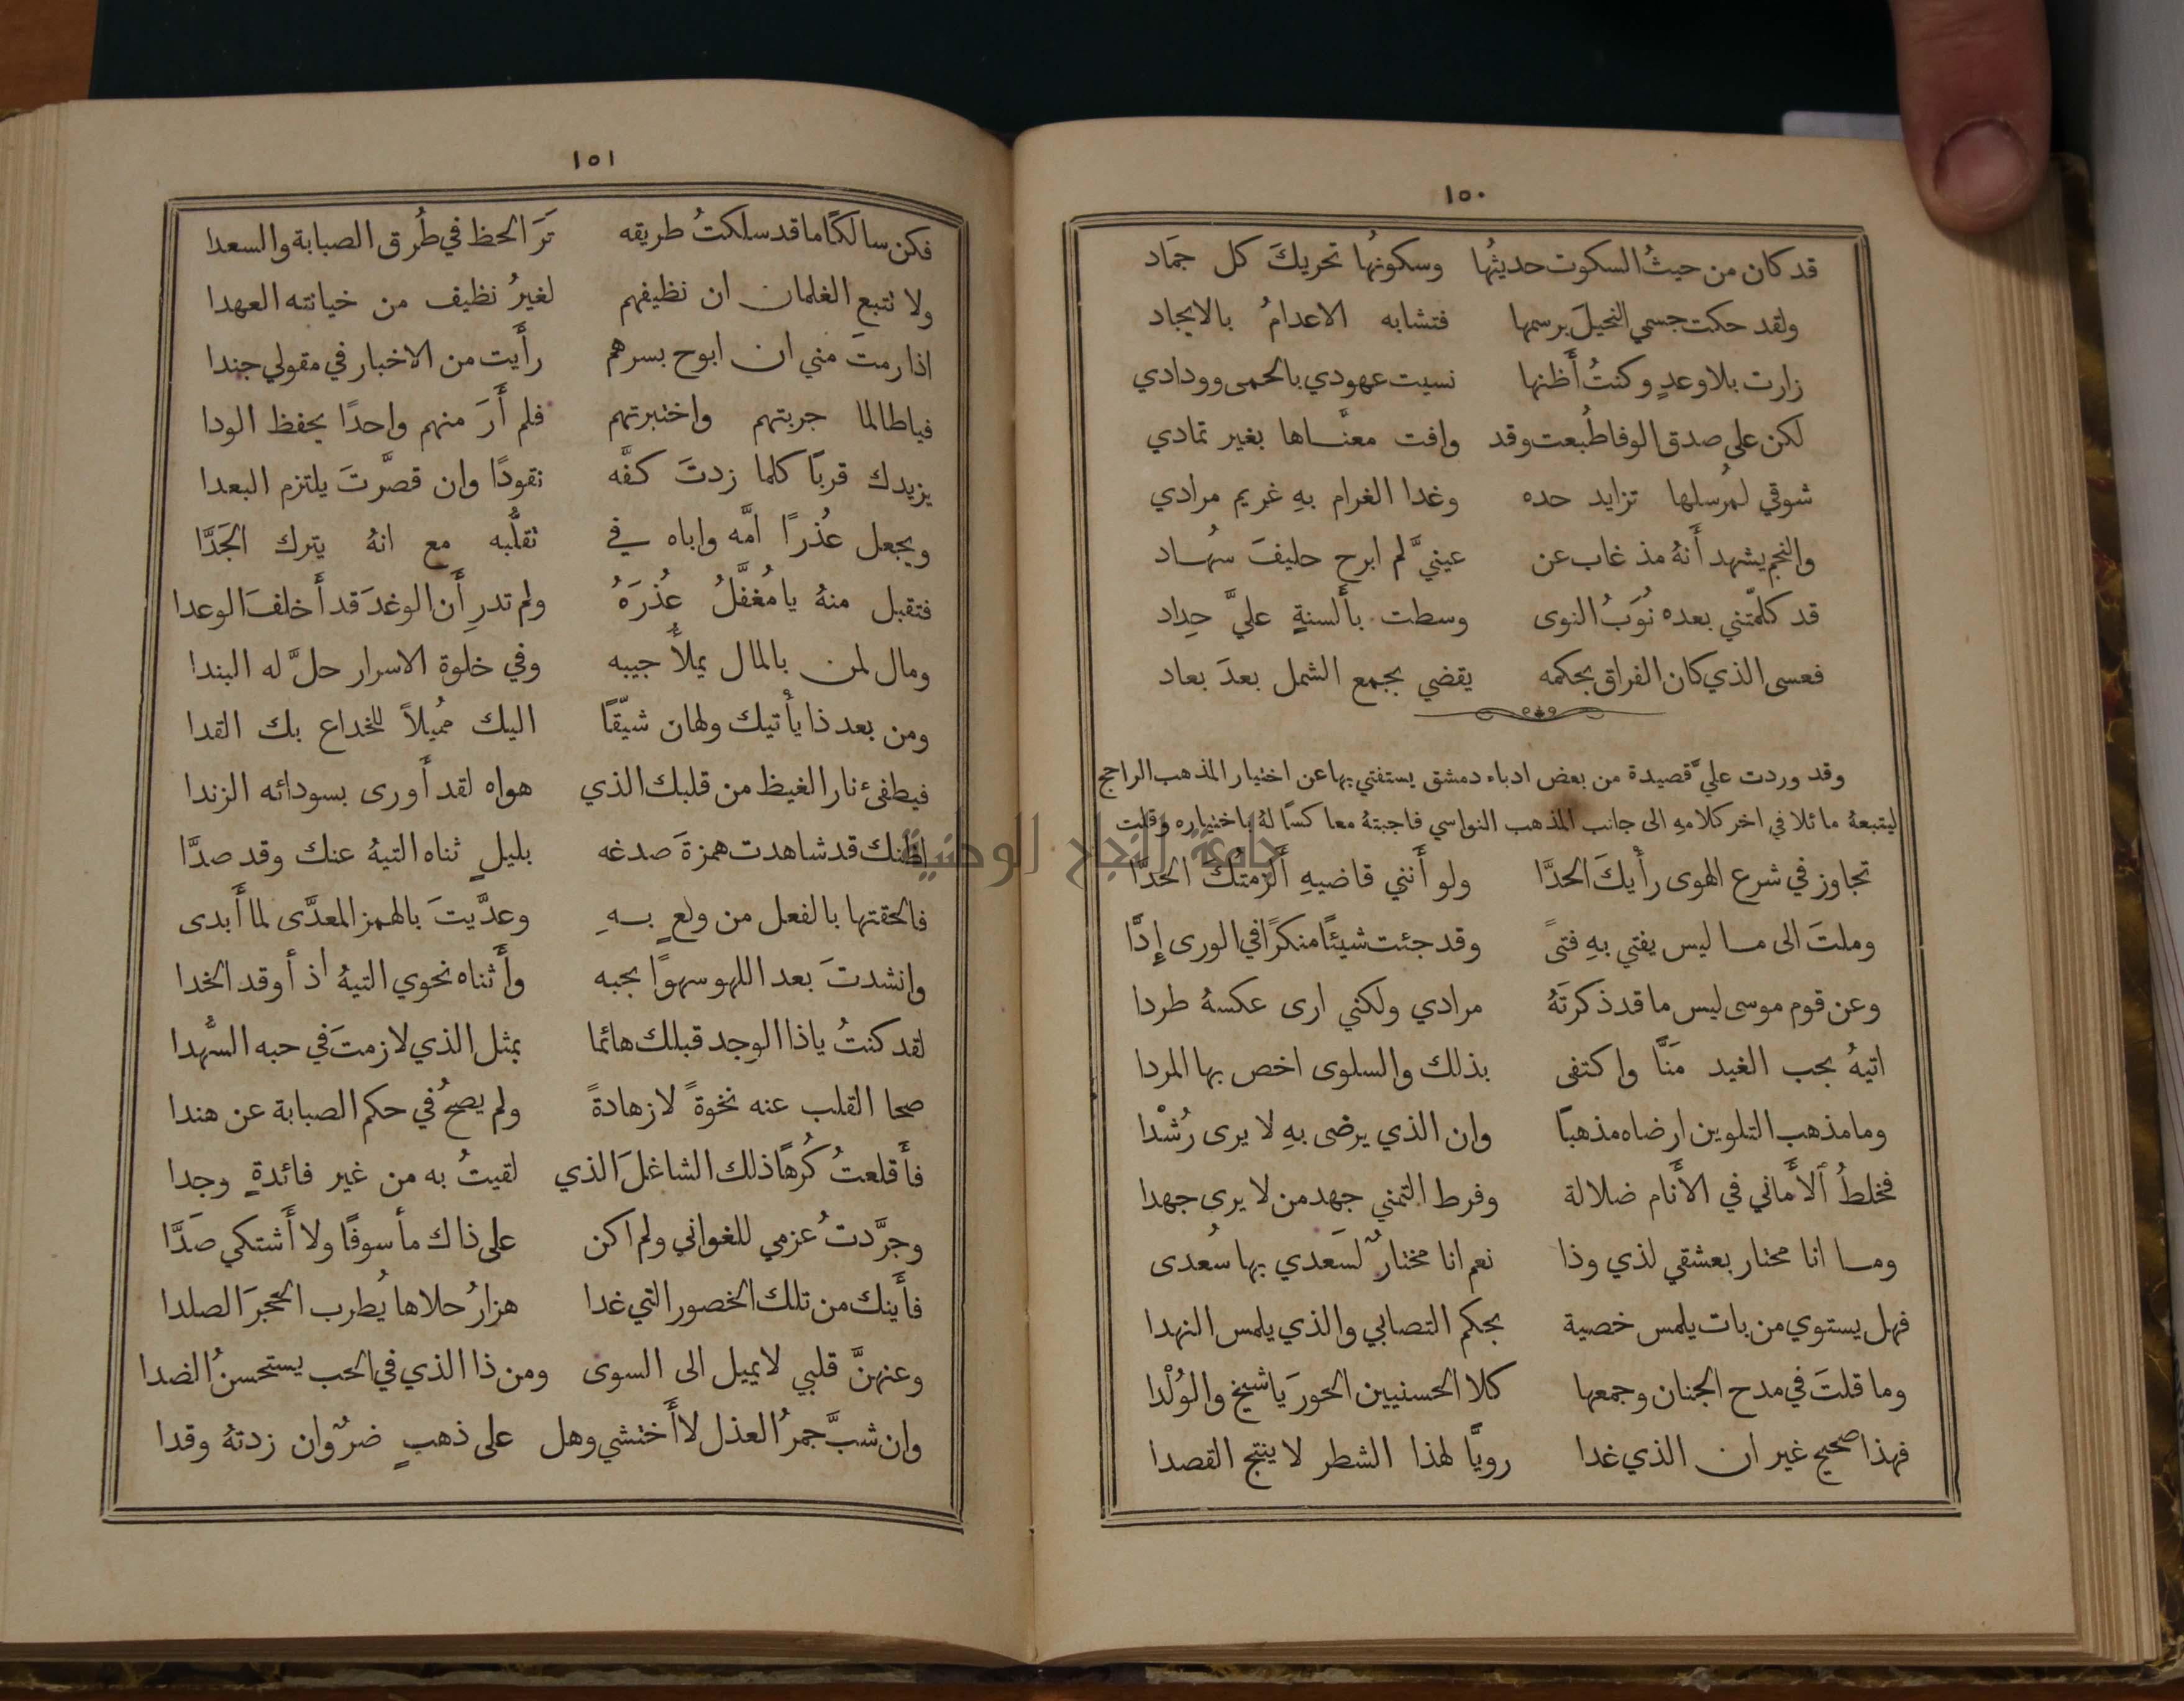 ١٥٠
قد كان من حيثُ السكوت حديثُها وسكونُها تحريكَ كل جمَاد
ولقد حكت جسمي النحيلَ برسمها فتشابه الاعدامُ بالايجاد
زارت بلا وعدٍ وكنتُ أَظنها نسيت عهودي بالحمى وودادي
لكن على صدق الوفا طُبعت وقد وافت معنَّاها بغير تمادي
شوقي لمُرسلها تزايد حده وغدا الغرام بهِ غريم مرادي
والنجم يشهد أَنهُ مذ غاب عن عينيَّ لم ابرح حليفَ سُهاد
قد كلمَّتني بعده نُوَبُ النوى وسطت بأَلسنةٍ عليَّ حِداد
فعسى الذي كان الفراق بحكمه يقضي بجمع الشمل بعدَ بعاد
وقد وردت عليَّ قصيدة من بعض ادباء دمشق يستفتي بها عن اختيار المذهب الراجح
ليتبعهُ مائلا في اخر كلامهِ الى جانب المذهب النواسي فاجبتهُ معاكسًا لهُ باختياره وقلت
جامعة النجاح الوطنية
تجاوز في شرع الهوى رأْيكَ الحدَّا ولو أَنني قاضيهِ أَلزمتُكَ الحدَّا
وملتَ الى ما ليس يفتي بهِ فتىً وقد جئت شيئًا منكرًا في الورى إِدَّا
وعن قوم موسى ليس ما قد ذكرتَهُ مرادي ولكني ارى عكسهُ طردا
اتيهُ بحب الغيد مَنَّا واكتفى بذلك والسلوى اخص بها المردا
وما مذهب التلوين ارضاه مذهبًا وان الذي يرضى بهِ لا يرى رُشْدا
فخلطُ ٱلأَماني في الأَنام ضلالة وفرط التمني جهد من لا يرى جهدا
وما انا محتار بعشقي لذي وذا نعم انا مختارٌ لسَعدي بها سُعدى
فهل يستوي من بات يلمس خصية بحكم التصابي والذي يلمس النهدا
وما قلتَ في مدح الجنان وجمعها كلا الحسنيين الحورَ يا شيخ والوُلْدا
فهذا صحيح غير ان الذي غدا رويًّا لهذا الشطر لا ينتج القصدا
١٥١
فكن سالكًا ما قد سلكتُ طريقه تَرَ الحظ في طُرق الصبابة والسعدا
ولا تتبع الغلمان ان نظيفهم لغيرُ نظيف من خيانته العهدا
اذا رمتَ مني ان ابوح بسرهم رأَيت من الاخبار في مقولي جندا
فيا طالما جربتهم واختبرتهم فلم أَرَ منهم واحدًا يحفظ الودا
يزيدك قربًا كلما زدتَ كفَّه نقودًا وان قصَّرتَ يلتزم البعدا
ويجعل عُذرًا امَّه واباه في تقلُّبه مع انهُ يترك الجَدَّا
فتقبل منهُ يا مُغفَّلُ عُذرَهُ ولم تدرِ أَن الوغدَ قد أَخلفَ الوعدا
ومال لمن بالمال يملأُ جيبه وفي خلوة الاسرار حلَّ له البندا
ومن بعد ذا يأْتيك ولهان شيّقًا اليك مُميلاً للخداع بك القدا
فيطفئ نار الغيظ من قلبك الذي هواه لقد أَورى بسودائه الزندا
اظنك قد شاهدت همزةَ صدغه بليلٍ ثناه التيهُ عنك وقد صدَّا
فالحقتها بالفعل من ولعٍ بهِ وعدَّيتَ بالهمز المعدَّى لما أَبدى
وانشدتَ بعد اللهو سهوًا بحبه وأَثناه نحوي التيهُ اذ أوقد الخدا
لقد كنتُ يا ذا الوجد قبلك هائما بمثل الذي لازمتَ في حبه السُّهدا
صحا القلب عنه نخوةً لا زهادةً ولم يصحُ في حكم الصبابة عن هندا
فأَقلعتُ كُرهًا ذلك الشاغلَ الذي لقيتُ به من غير فائدةٍ وجدا
وجرَّدتُ عزمي للغواني ولم اكن على ذاك مأسوفًا ولا أَشتكي صَدَّا
فأَينك من تلك الخصور التي غدا هزارُ حلاها يُطرب الحجرَ الصلدا
وعنهنَّ قلبي لا يميل الى السوى ومن ذا الذي في الحب يستحسنُ الضدا
وان شبَّ جمرُ العذل لا أَختشي وهل على ذهبٍ ضرٌ وان زدتهُ وقدا